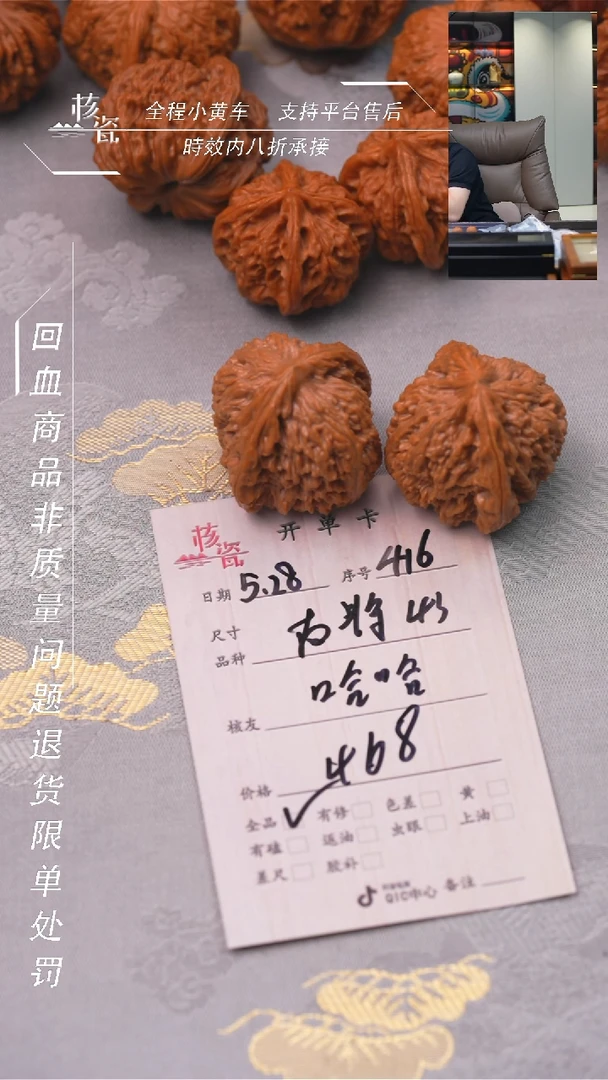 核瓷
全程小黄车 支持平台售后
時效内八折承接
回血商品非质量问题退货限单处罚
核瓷 开单卡
日期 5.28 序号 416
尺寸
品种 将 43
核友 哈哈
价格 468
全品 ✓ 有修 色差 黄
有磕 返油 虫眼 上油
差尺 胶补
QIC中心 备注